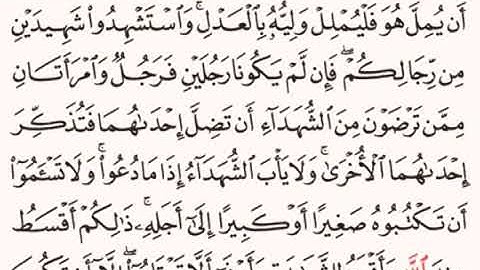 أَن يُمِلَّ هُوَ فَلْيُمْلِلْ وَلِيُّهُۥ بِٱلْعَدْلِۚ وَٱسْتَشْهِدُوا۟ شَهِيدَيْنِ
مِن رِّجَالِكُمْۖ فَإِن لَّمْ يَكُونَا رَجُلَيْنِ فَرَجُلٌ وَٱمْرَأَتَانِ
مِمَّن تَرْضَوْنَ مِنَ ٱلشُّهَدَآءِ أَن تَضِلَّ إِحْدَىٰهُمَا فَتُذَكِّرَ
إِحْدَىٰهُمَا ٱلْأُخْرَىٰۚ وَلَا يَأْبَ ٱلشُّهَدَآءُ إِذَا مَا دُعُوا۟ۚ وَلَا تَسْـَٔمُوٓا۟
أَن تَكْتُبُوهُ صَغِيرًا أَوْ كَبِيرًا إِلَىٰٓ أَجَلِهِۦۚ ذَٰلِكُمْ أَقْسَطُ
ٱللَّهِ